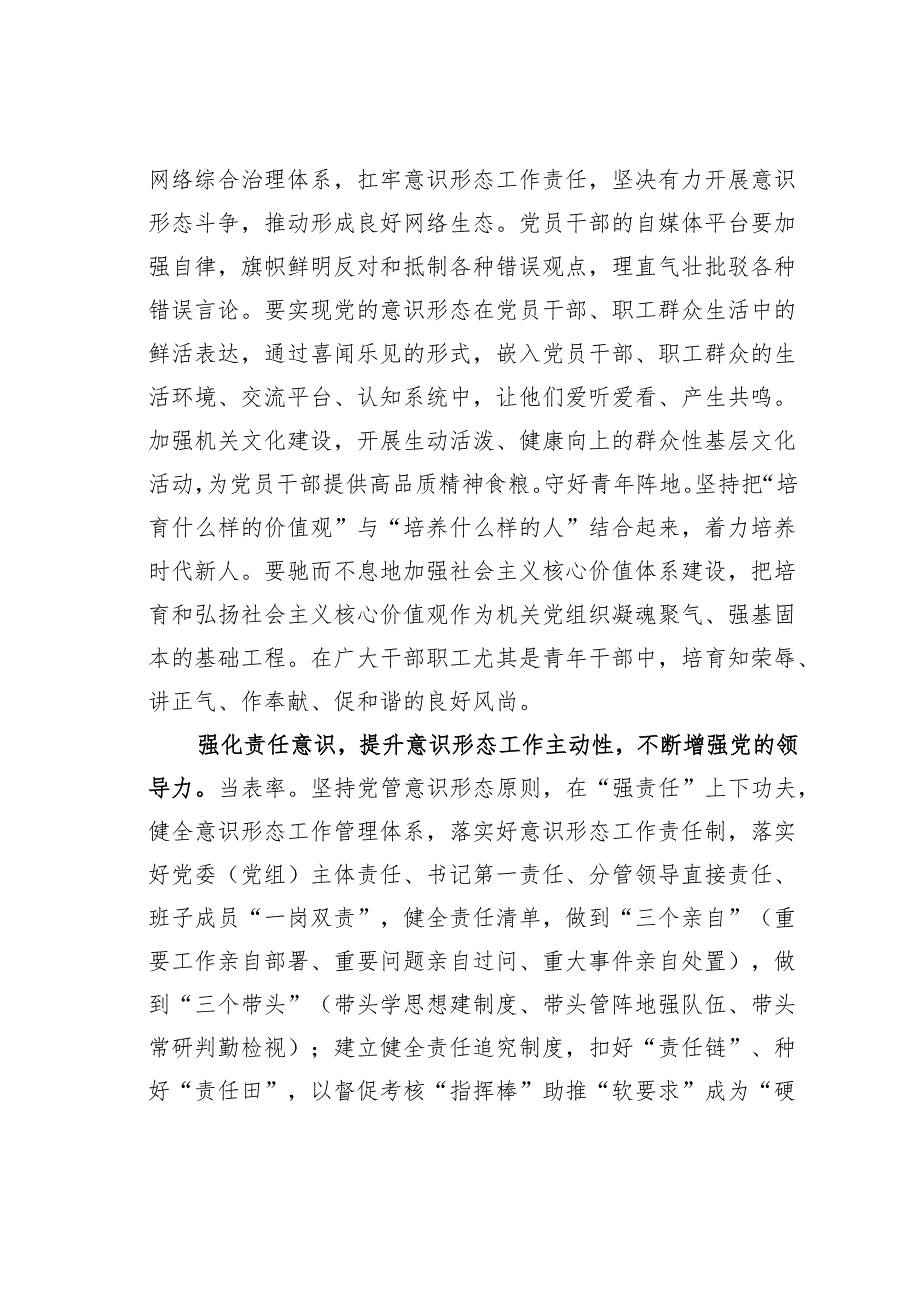 网络综合治理体系，扛牢意识形态工作责任，坚决有力开展意识
形态斗争，推动形成良好网络生态。党员干部的自媒体平台要加
强自律，旗帜鲜明反对和抵制各种错误观点，理直气壮批驳各种
错误言论。要实现党的意识形态在党员干部、职工群众生活中的
鲜活表达，通过喜闻乐见的形式，嵌入党员干部、职工群众的生
活环境、交流平台、认知系统中，让他们爱听爱看、产生共鸣。
加强机关文化建设，开展生动活泼、健康向上的群众性基层文化
活动，为党员干部提供高品质精神食粮。守好青年阵地。坚持把“培
育什么样的价值观”与“培养什么样的人”结合起来，着力培养
时代新人。要驰而不息地加强社会主义核心价值体系建设，把培
育和弘扬社会主义核心价值观作为机关党组织凝魂聚气、强基固
本的基础工程。在广大干部职工尤其是青年干部中，培育知荣辱、
讲正气、作奉献、促和谐的良好风尚。
强化责任意识，提升意识形态工作主动性，不断增强党的领
导力。当表率。坚持党管意识形态原则，在“强责任”上下功夫，
健全意识形态工作管理体系，落实好意识形态工作责任制，落实
好党委（党组）主体责任、书记第一责任、分管领导直接责任、
班子成员“一岗双责”，健全责任清单，做到“三个亲自”（重
要工作亲自部署、重要问题亲自过问、重大事件亲自处置），做
到“三个带头”（带头学思想建制度、带头管阵地强队伍、带头
常研判勤检视）；建立健全责任追究制度，扣好“责任链”、种
好“责任田”，以督促考核“指挥棒”助推“软要求”成为“硬